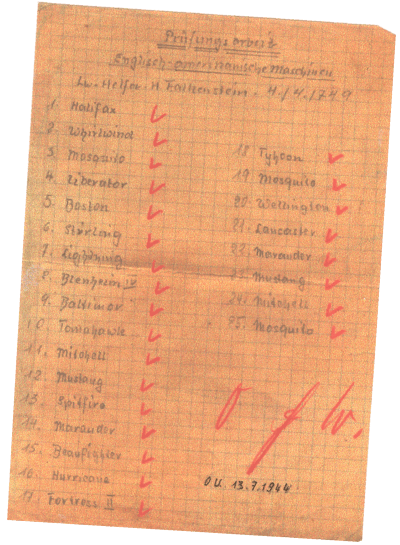 Prüfungsarbeit
Englisch-amerikanische Maschinen
Lw.-Helfer H. Falkenstein. 4./4./749
1. Halifax
2. Whirlwind
3. Mosquito
4. Liberator
5. Boston
6. Stirling
7. Lightning
8. Blenheim IV
9. Baltimor
10. Tomahawk
11. Mitchell
12. Mustang
13. Spitfire
14. Marauder
15. Beaufighter
16. Hurricane
17. Fortress II
18. Typhoon
19. Mosquito
20. Wellington !
21. Lancaster
22. Marauder
23. Mustang
24. Mitchell
25. Mosquito
O. f. W.
O.U. 13.7.1944